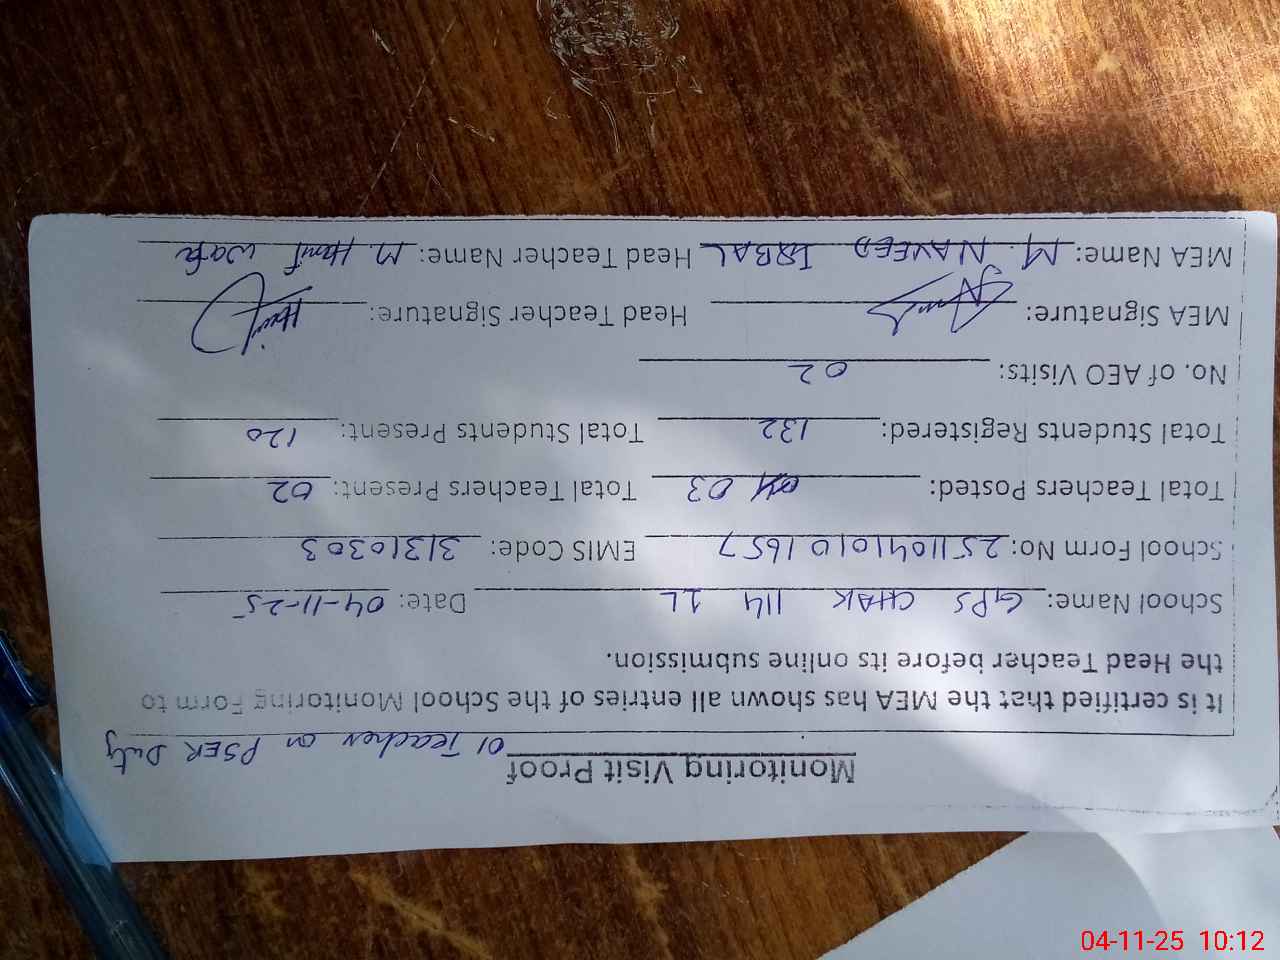 Monitoring Visit Proof
01 Teacher on PSER Duty
It is certified that the MEA has shown all entries of the School Monitoring Form to
the Head Teacher before its online submission.
School Name: GPS CHAK 114 1L Date: 04-11-25
School Form No: 25110410101657 EMIS Code: 31310303
Total Teachers Posted: 03 Total Teachers Present: 02
Total Students Registered: 132 Total Students Present: 120
No. of AEO Visits: 02
MEA Signature: Head Teacher Signature:
MEA Name: M. NAVEED IQBAL Head Teacher Name: M. Hanif
04-11-25 10:12